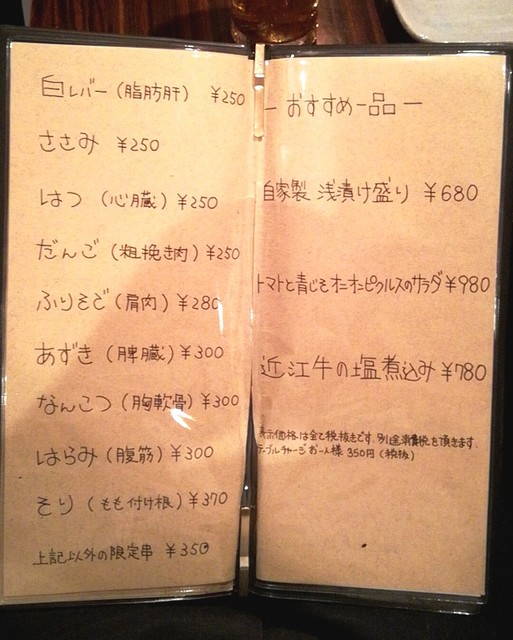 白レバー（脂肪肝） ¥250
ささみ ¥250
はつ（心臓）¥250
だんご（粗挽き肉）¥250
ふりそで（肩肉）¥280
あずき（脾臓）¥300
なんこつ（胸軟骨）¥300
はらみ（腹筋）¥300
そり（もも付け根）¥370
上記以外の限定串 ¥350
ー おすすめ一品 ー
自家製 浅漬け盛り ¥680
トマトと青じそオニオンピクルスのサラダ¥980
近江牛の塩煮込み ¥780
表示価格は全て税抜きです。別途消費税を頂きます。
テーブルチャージお一人様 350円（税抜）